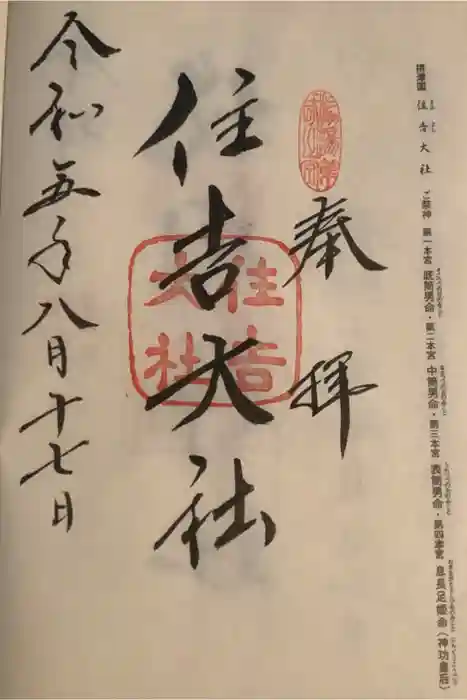 摂津国 住吉大社 ご祭神 第一本宮 底筒男命・第二本宮 中筒男命・第三本宮 表筒男命・第四本宮 息長足姫命(神功皇后)
奉拝
住吉大社
住吉大社
令和五年八月十七日